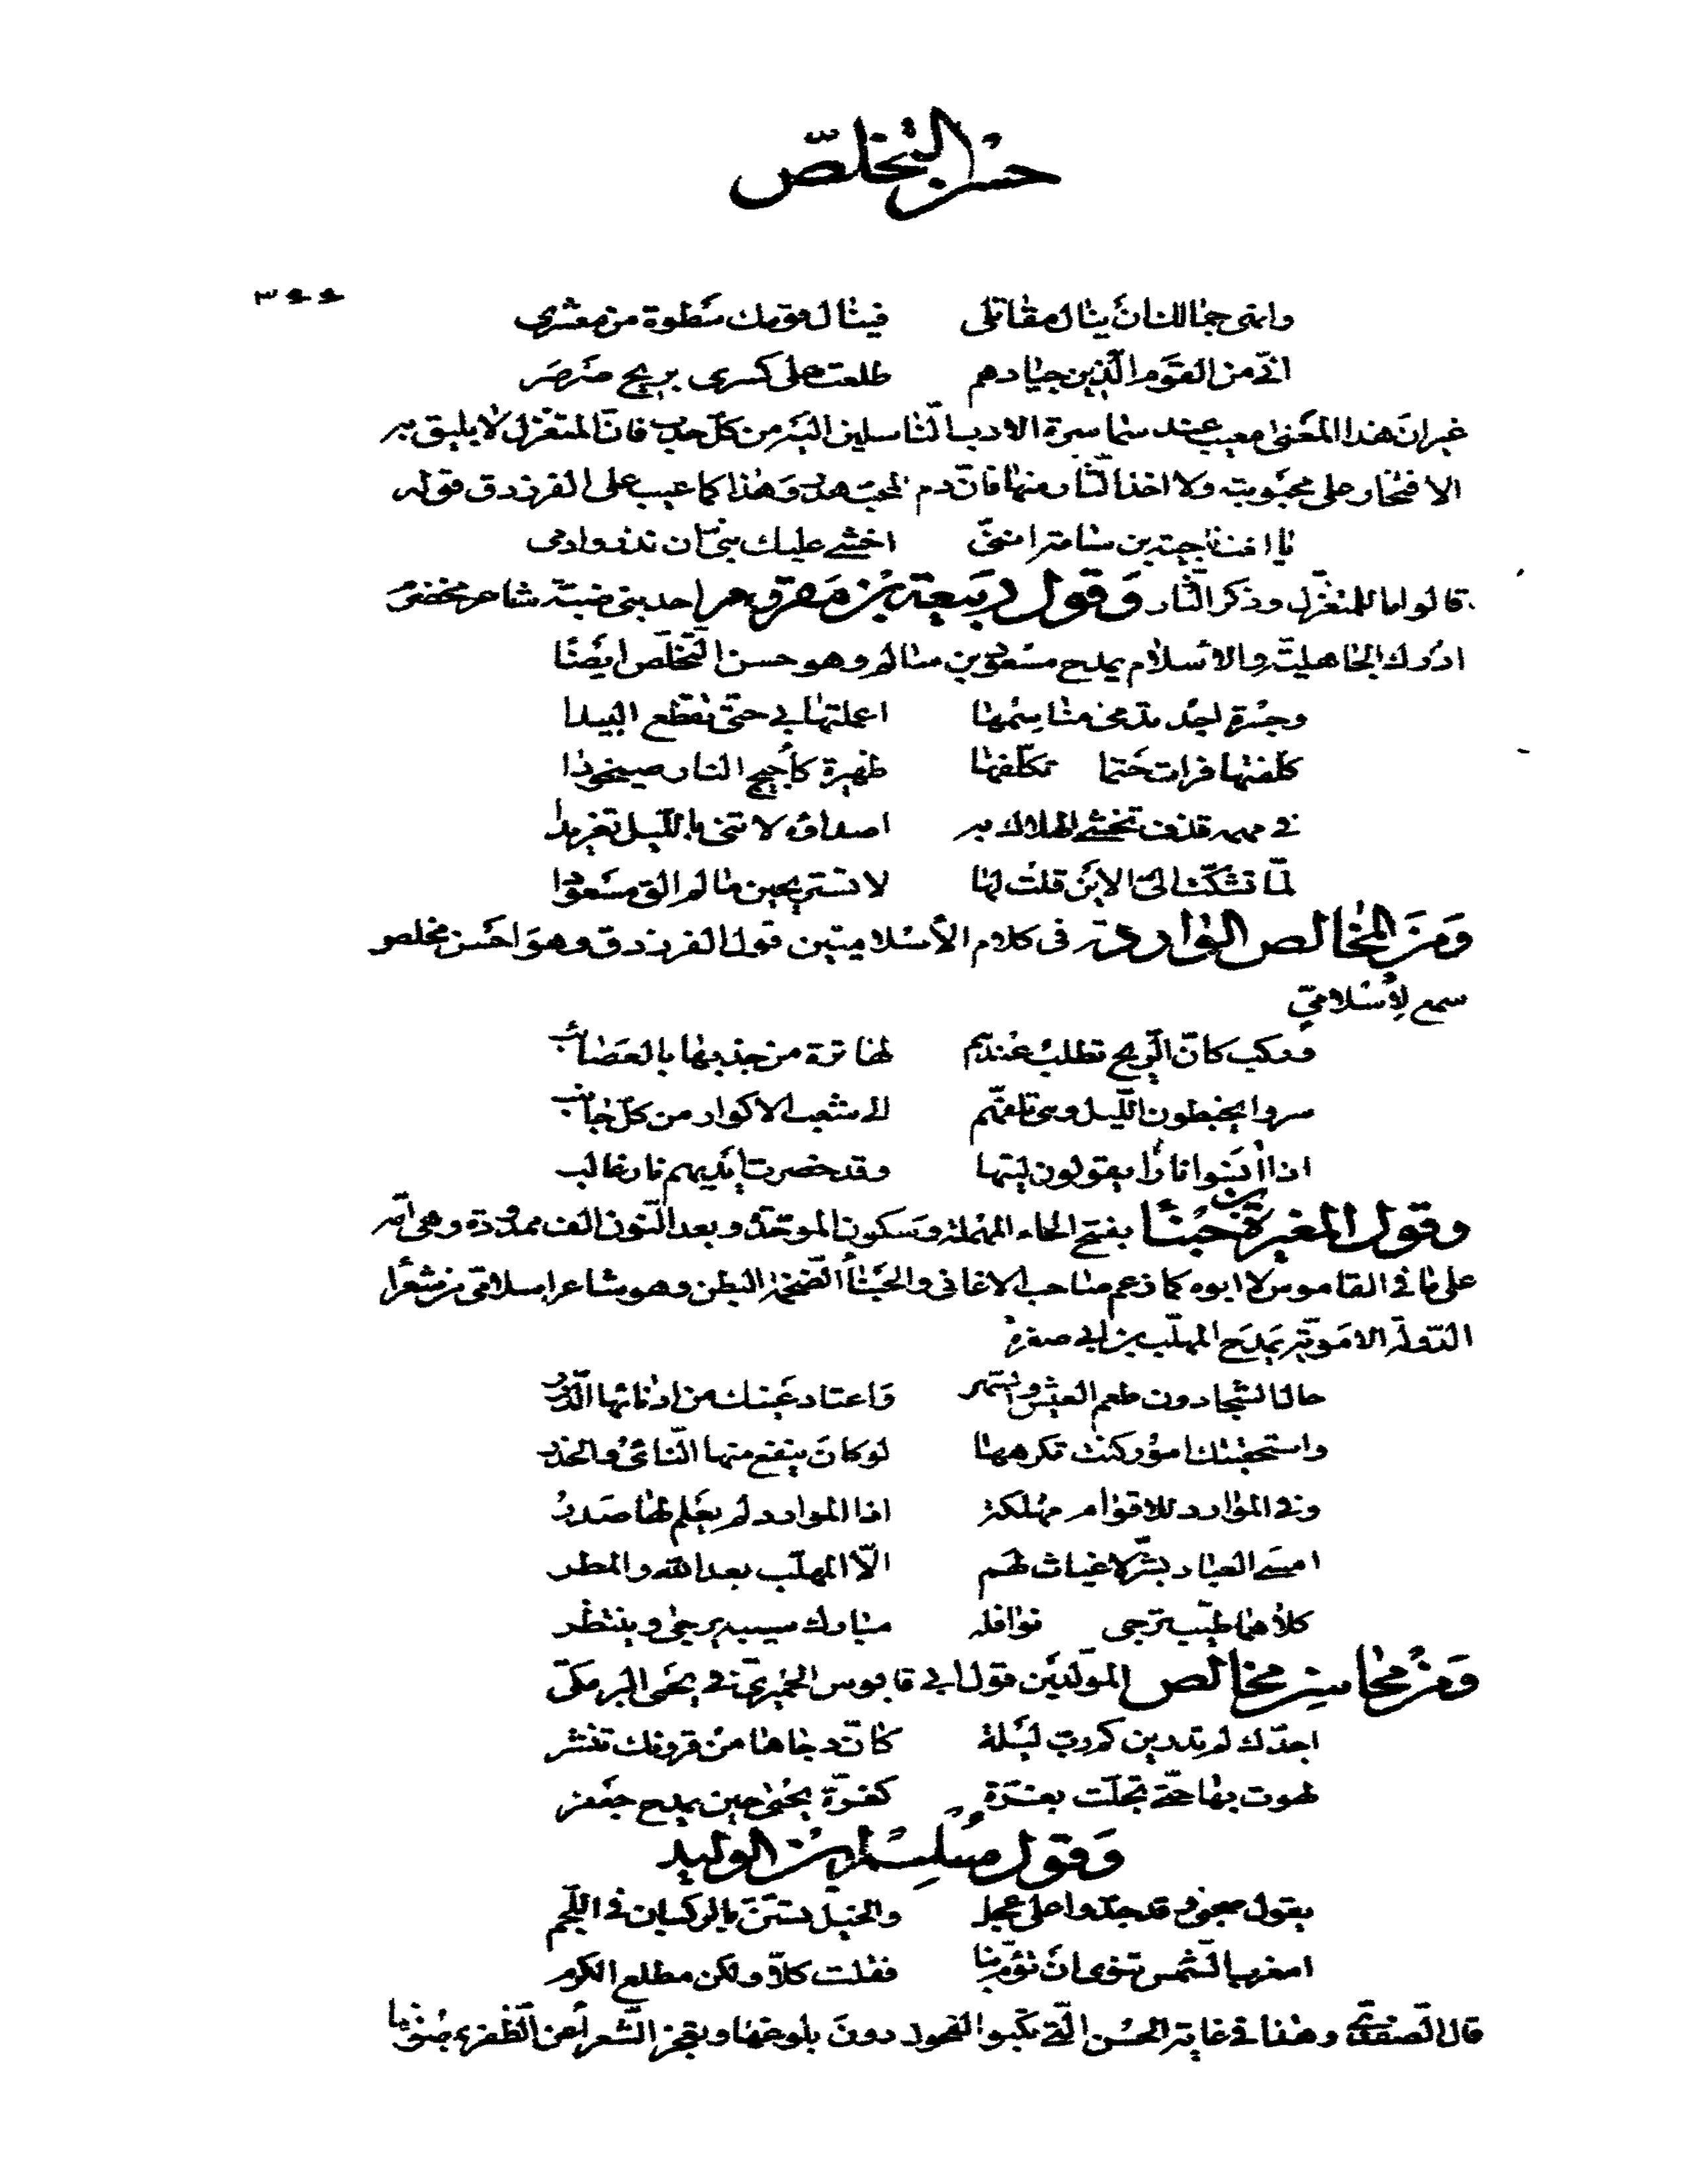 حسن التخلّص
وابنى جمالك ان ينال مقاتلى فينال قومك سطوة من معشرى
انّى من القوم الّذين جيادهم طلعت على كسرى بريح صرصر
غير ان هذا المعنى معيب عند سماسرة الادب النّاسلين اليه من كلّ حدب فانّ المتغزّل لا يليق به
الافتخار على محبوبته ولا اخذ الثّار منها فانّ دم المحبّ هدر وهذا كما عيب على الفرزدق قوله
يا اخت ناجية بن سامة انّنى اخشى عليك بنىّ ان نذروا دمى
قالوا ما للمتغزّل وذكر الثّار وقول ربيعة بن مقروم احد بنى ضبّة شاعر مخضرم
ادرك الجاهليّة والاسلام يمدح مسعود بن سالم وهو حسن التّخلّص ايضًا
وجسرة اجد تدمى مناسمها اعملتها بى حتّى نقطع البيدا
كلّفتها فرات حتما تكلّفها ظهيرة كأجيج النار صيخودا
فى مهمه قذف تخشى الهلاك به اصداؤه لا تنى باللّيل تغريدا
لمّا تشكّت الىّ الاين قلت لها لا تستريحين ما لم الق مسعودا
ومن المخالص الواردة فى كلام الأسلاميّين قول الفرزدق وهو احسن مخلص
سمع لإسلامىّ
وركب كانّ الرّيح تطلب عندهم لها ترة من جذبها بالعصائب
سروا يخبطون اللّيل وهى تلفّهم الى شعب الاكوار من كلّ جانب
اذا أنسوا نارًا يقولون ليتها وقد خصرت ايديهم نار غالب
وقول المغيرة بن حبناء بفتح الحاء المهملة وسكون الموحّدة وبعد النّون الف ممدودة وهى امّه
على ما فى القاموس لا ابوه كما زعم صاحب الاغانى والحبناء الضّخمة البطن وهو شاعر إسلامىّ من شعرا
الدّولة الامويّة يمدح المهلّب بن ابى صفرة
حال الشّجا دون طعم العيش والسّهر واعتاد عينك من ادمانها الدّرر
واستحقبتك امور كنت تكرهها لو كان ينفع منها النّائى والحذر
وفى الموارد للاقوام مهلكة اذا الموارد لم يعلم لها صدر
امسى العباد بشرّ لا غياث لهم الّا المهلّب بعد الله والمطر
كلاهما طيّب ترجى نوافله مبارك سيبه يرجى وينتظر
ومن محاسن مخالص المولّدين قول ابى قابوس الحميرىّ فى يحيى البرمكىّ
اجدّك لم تدرين كم ربّ ليلة كانّ دجاها من قرونك تنشر
لهوت بها حتّى تجلّت بغرّة كغرّة يحيى حين يمدح جعفر
وقول مسلم بن الوليد
يقول صحبى وقد جدّوا على عجل والخيل تستنّ بالركبان فى اللّجم
امغرب الشّمس تنوى ان تؤمّ بنا فقلت كلاّ ولكن مطلع الكرم
قال الصّفدىّ وهذا فى غاية الحسن الّتى تكبوا الفحول دون بلوغها ويعجز الشّعراء عن الظّفر